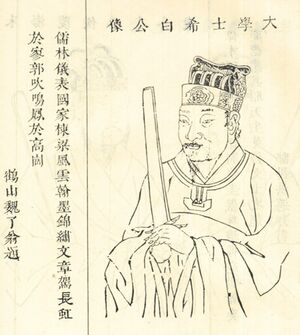 大學士希白公像
儒林儀表國家棟梁風雲翰墨錦繡文章駕長虹
於寥郭吹鳴鳳於高岡
鶴山魏了翁題